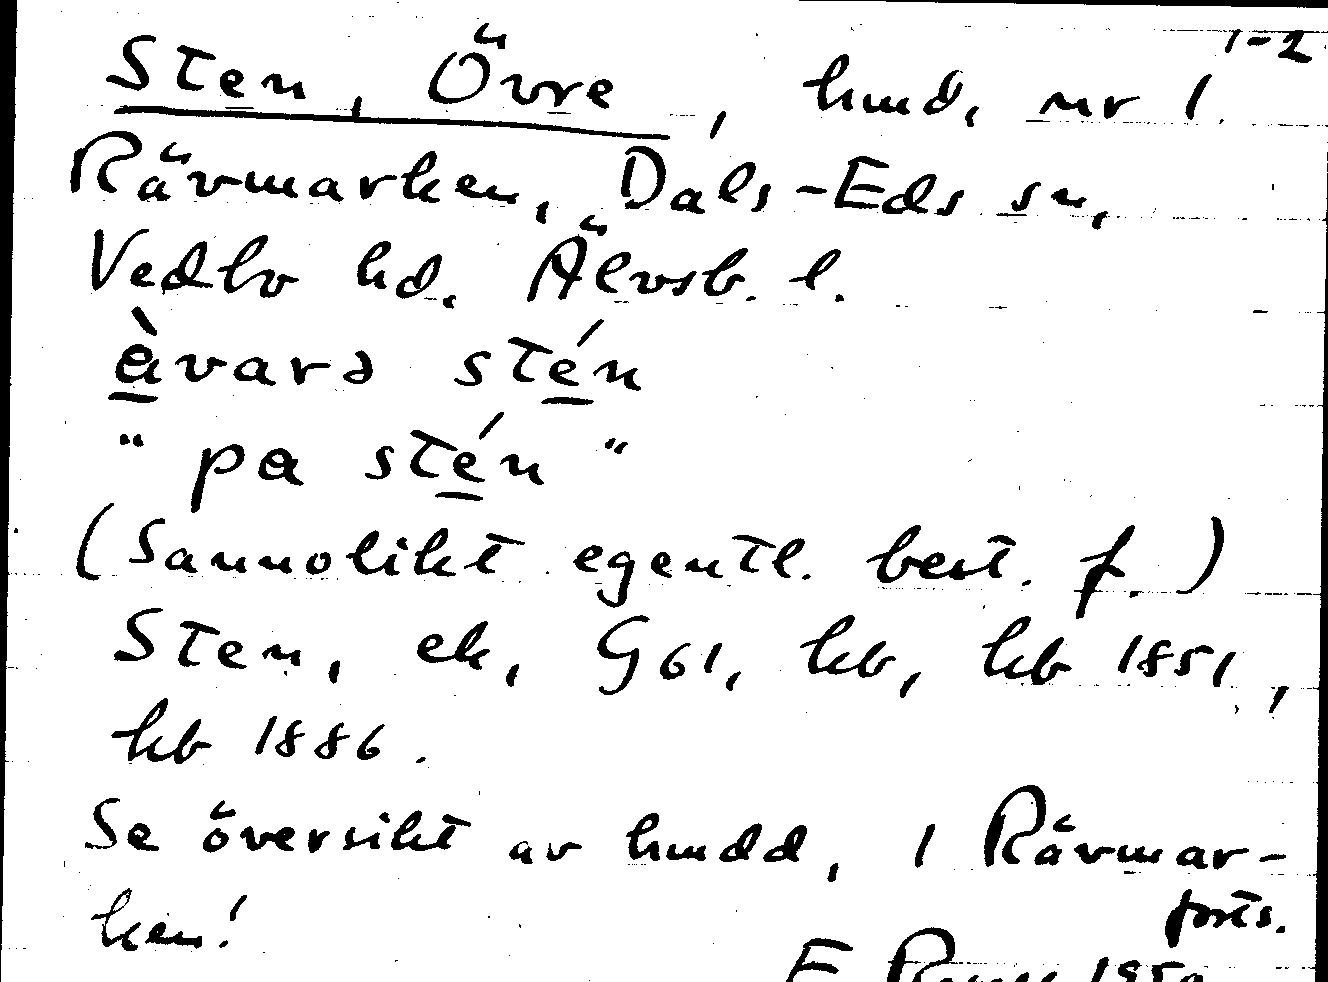 1-2
Sten, Övre, hmd. nr 1
Rävmarken, Dals-Eds sn,
Vedbo hd. Älvsb. l.
àvarə stén
"pa stén"
(Sannolikt egentl. best. f.)
Sten, ek, G61, kb, kb 1851,
kb 1886.
Se översikt av hmdd, 1 Rävmar-
ken!
forts.
E